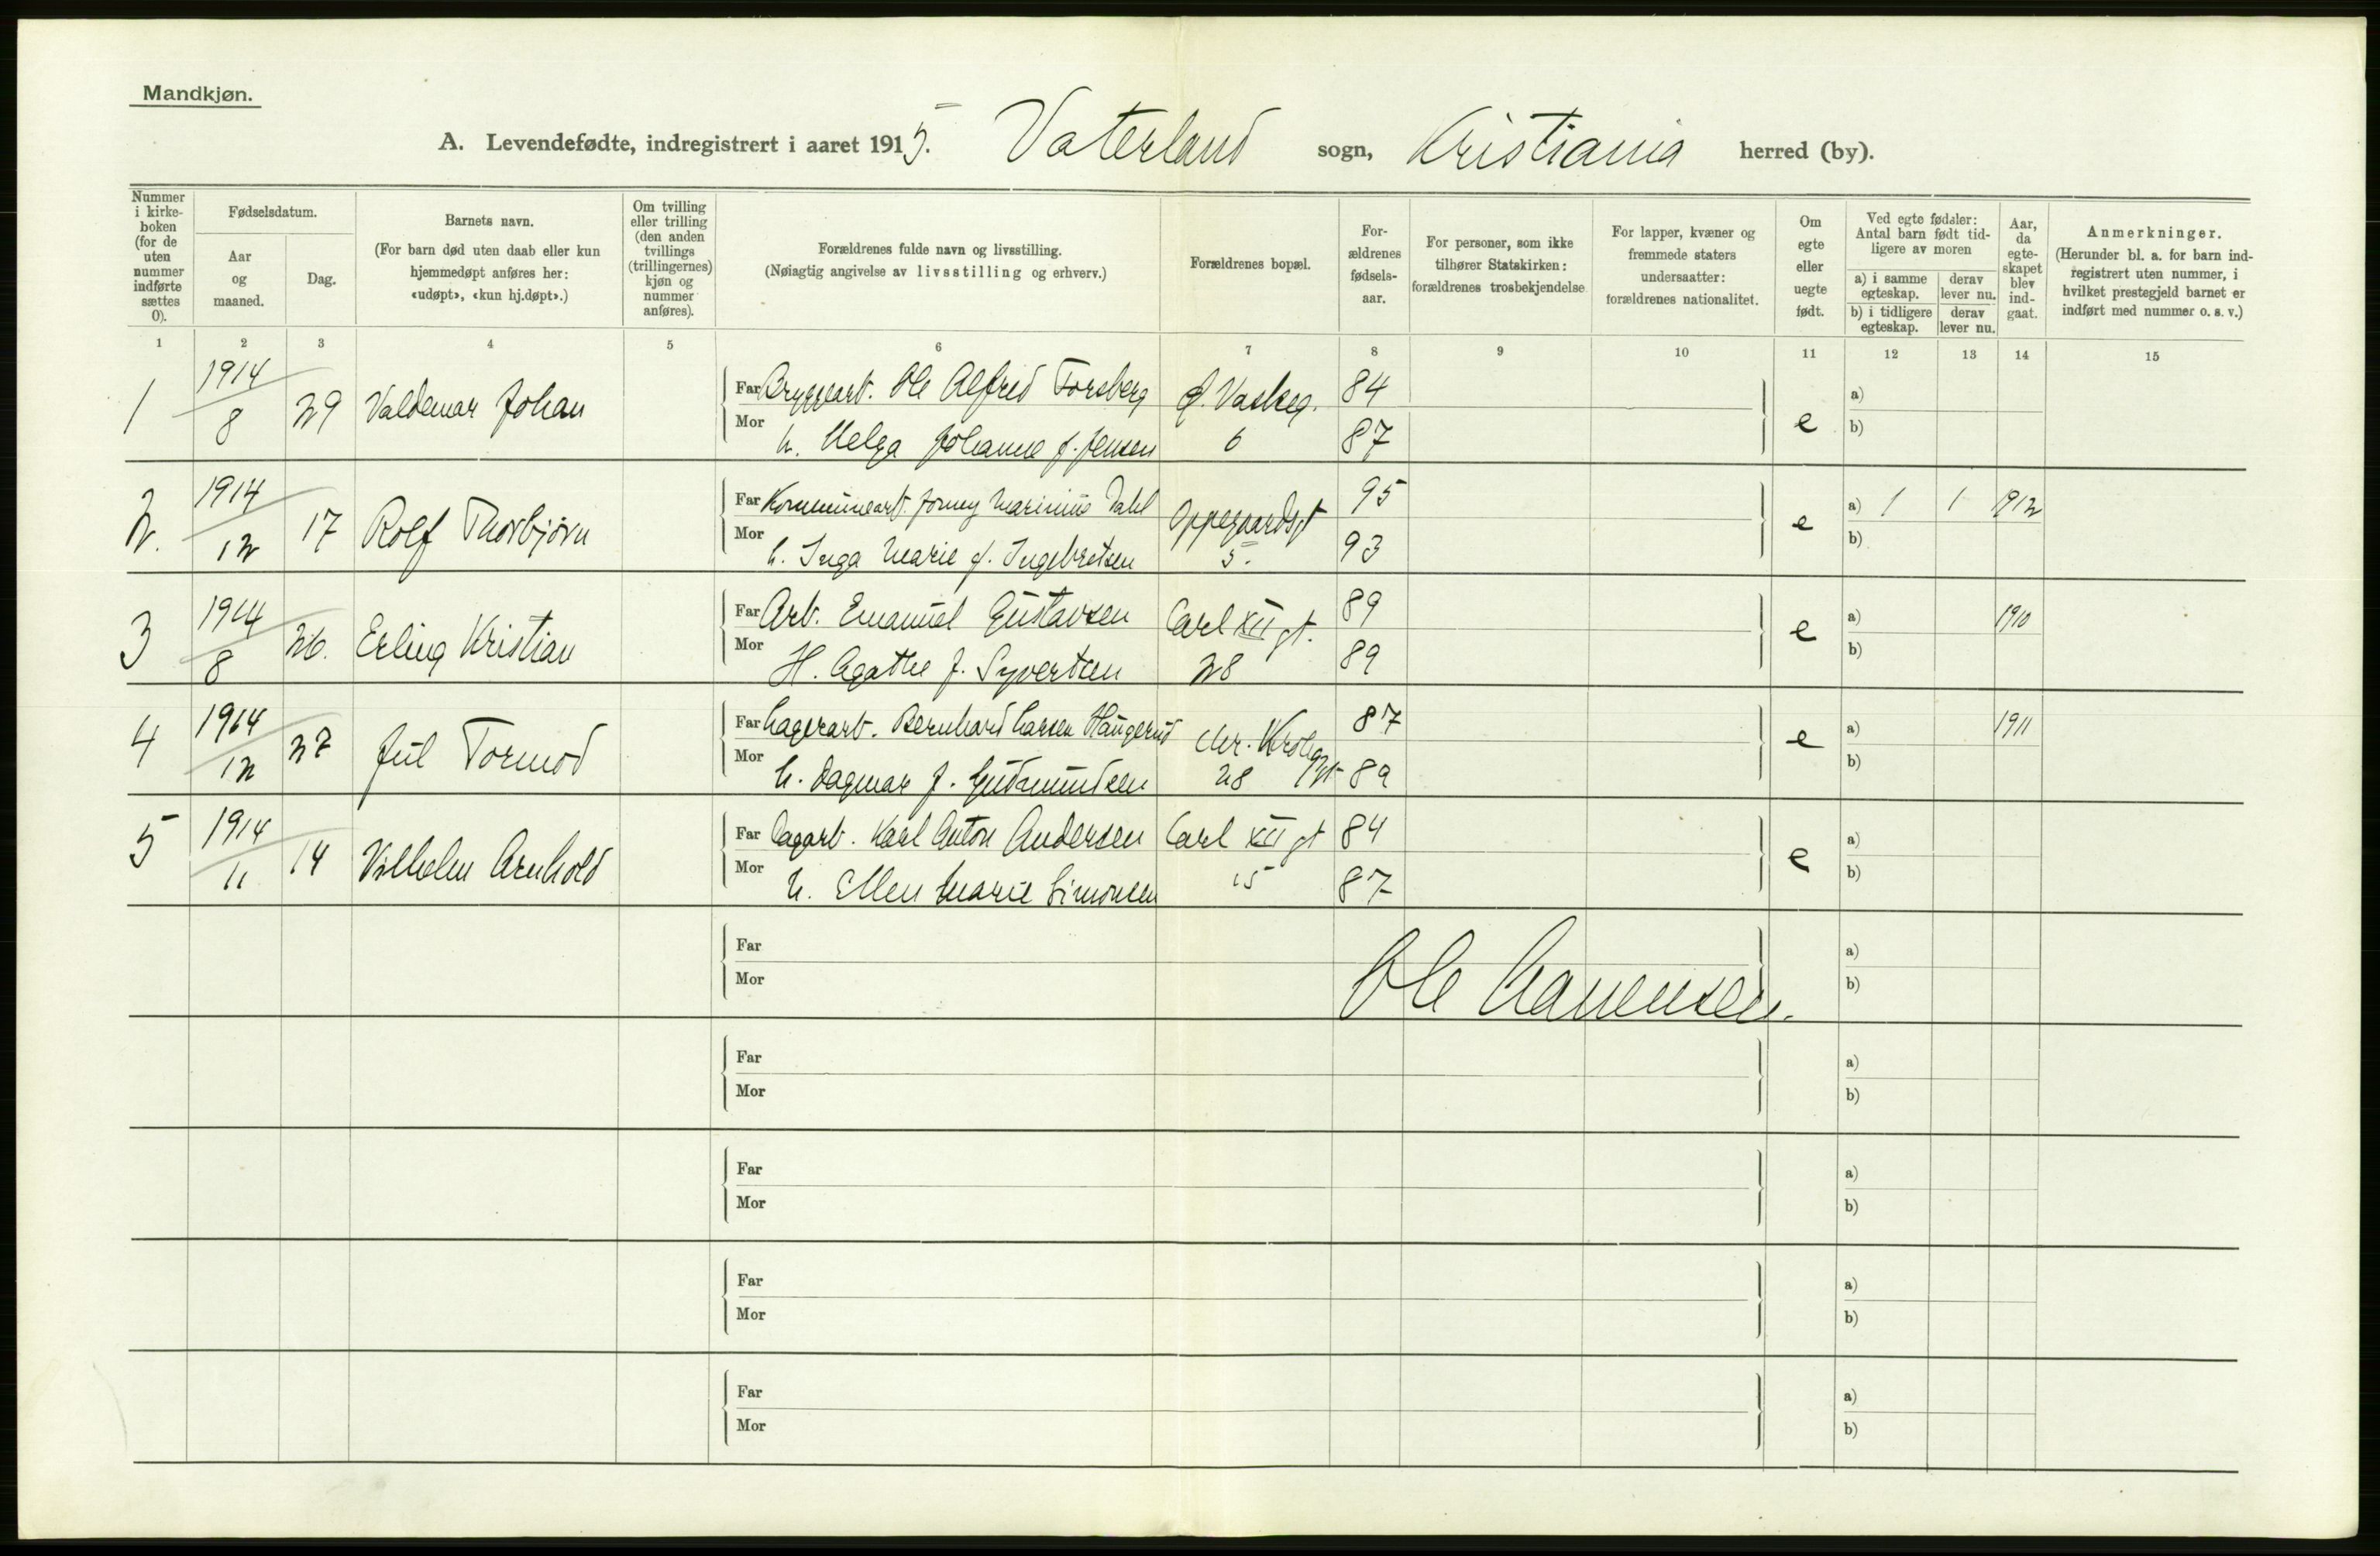 Mandkjøn.
A. Levendefødte, indregistrert i aaret 1915. Vaterland sogn, Kristiania herred (by).
Nummer i kirke-boken (for de uten nummer indførte sættes 0).
Fødselsdatum.
Aar og maaned.
Dag.
Barnets navn.
(For barn død uten daab eller kun hjemmedøpt anføres her: «udøpt», «kun hj.døpt».)
Om tvilling eller trilling (den anden tvillings (trillingernes) kjøn og nummer anføres).
Forældrenes fulde navn og livsstilling.
(Nøiagtig angivelse av livsstilling og erhverv.)
Forældrenes bopæl.
For-ældrenes fødsels-aar.
For personer, som ikke tilhører Statskirken: forældrenes trosbekjendelse
For lapper, kvæner og fremmede staters undersaatter: forældrenes nationalitet.
Om egte eller uegte født.
Ved egte fødsler: Antal barn født tid-ligere av moren
a) i samme egteskap.
derav lever nu.
b) i tidligere egteskap.
derav lever nu.
Aar, da egte-skapet blev ind-gaat.
Anmerkninger.
(Herunder bl. a. for barn ind-registrert uten nummer, i hvilket prestegjeld barnet er indført med nummer o. s. v.)
1 2 3 4 5 6 7 8 9 10 11 12 13 14 15
1 1914/8 29 Valdemar Johan Far Bryggarb. Ole Alfred Forsberg 84 e a)
Mor h. Helga Johanne f. Jensen 6 87 b)
2. 1914/12 17 Rolf Thorbjørn Far Kommunearb. Marinius Dahl Oppegaardsgt 95 e a) 1 1 1912
Mor h. Inga Marie f. Ingebretsen 5. 93 b)
3 1914/8 26. Erling Kristian Far Arb. Emanuel Gustavsen Carl XII gt. 89 e a) 1910
Mor H. Agathe f. Syvertsen 28 89 b)
4 1914/12 27 Jul Tormod Far Lagerarb. Bernhard Larsen Haugerud Chr. Krohgs gt 87 e a) 1911
Mor h. Dagmar f. Gudmundsen 28 89 b)
5 1914/11 14 Vilhelm Arnhold Far Dagarb. Karl Anton Andersen Carl XII gt 84 e a)
Mor h. Ellen Marie Simonsen 15 87 b)
Far a)
Mor Ole b)
Far a)
Mor b)
Far a)
Mor b)
Far a)
Mor b)
Far a)
Mor b)